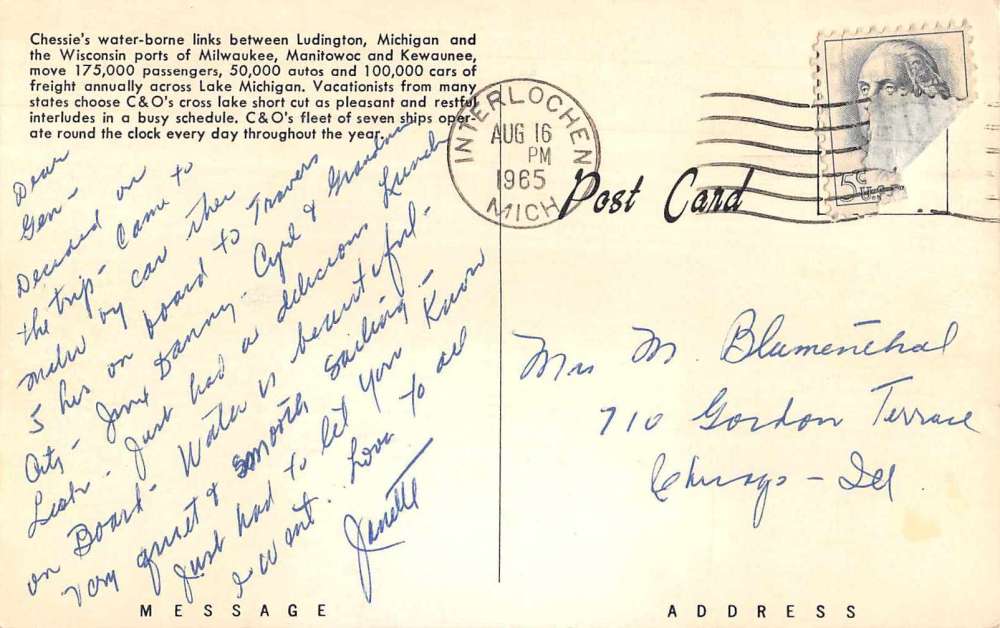 Chessie's water-borne links between Ludington, Michigan and
the Wisconsin ports of Milwaukee, Manitowoc and Kewaunee,
move 175,000 passengers, 50,000 autos and 100,000 cars of
freight annually across Lake Michigan. Vacationists from many
states choose C&O's cross lake short cut as pleasant and restful
interludes in a busy schedule. C&O's fleet of seven ships oper-
ate round the clock every day throughout the year.
Dear
Gen-
Decided on
the trip - Came to
Milw by car then
5 hrs on board to Travers
City - Danny - &
Just had a delicious Lunch
on Board - Water is beautiful -
very quiet & smooth sailing -
Just had to let you Know
I went. Love to all
Janette
INTERLOCHEN
AUG 16
PM
1965
MICH
5¢ U.S.
Post Card
Mrs M. Blumenthal
710 Gordon Terrace
Chicago - Ill
MESSAGE
ADDRESS